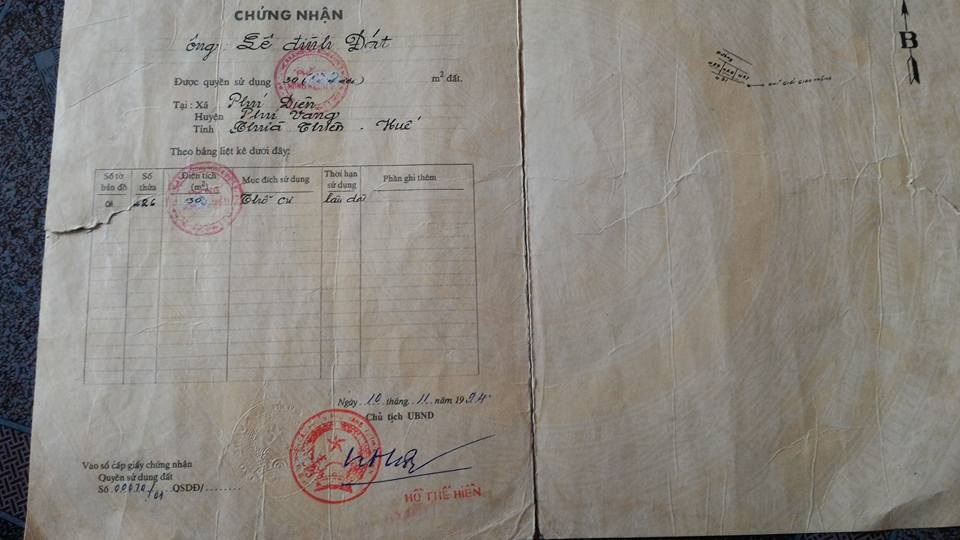 CHỨNG NHẬN
ông Lê đình Đát
Được quyền sử dụng 30 m² đất.
Tại : Xã Phú Diên
Huyện Phú Vang
Tỉnh Thừa Thiên - Huế
Theo bảng liệt kê dưới đây:
Số tờ bản đồ Số thửa Diện tích (m²) Mục đích sử dụng Thời hạn sử dụng Phần ghi thêm
01 426 30 Thổ cư Lâu dài
Ngày 10 tháng 11 năm 1994
Chủ tịch UBND
Vào sổ cấp giấy chứng nhận
Quyền sử dụng đất
Số QSDĐ/
HỒ THẾ HIÊN
B